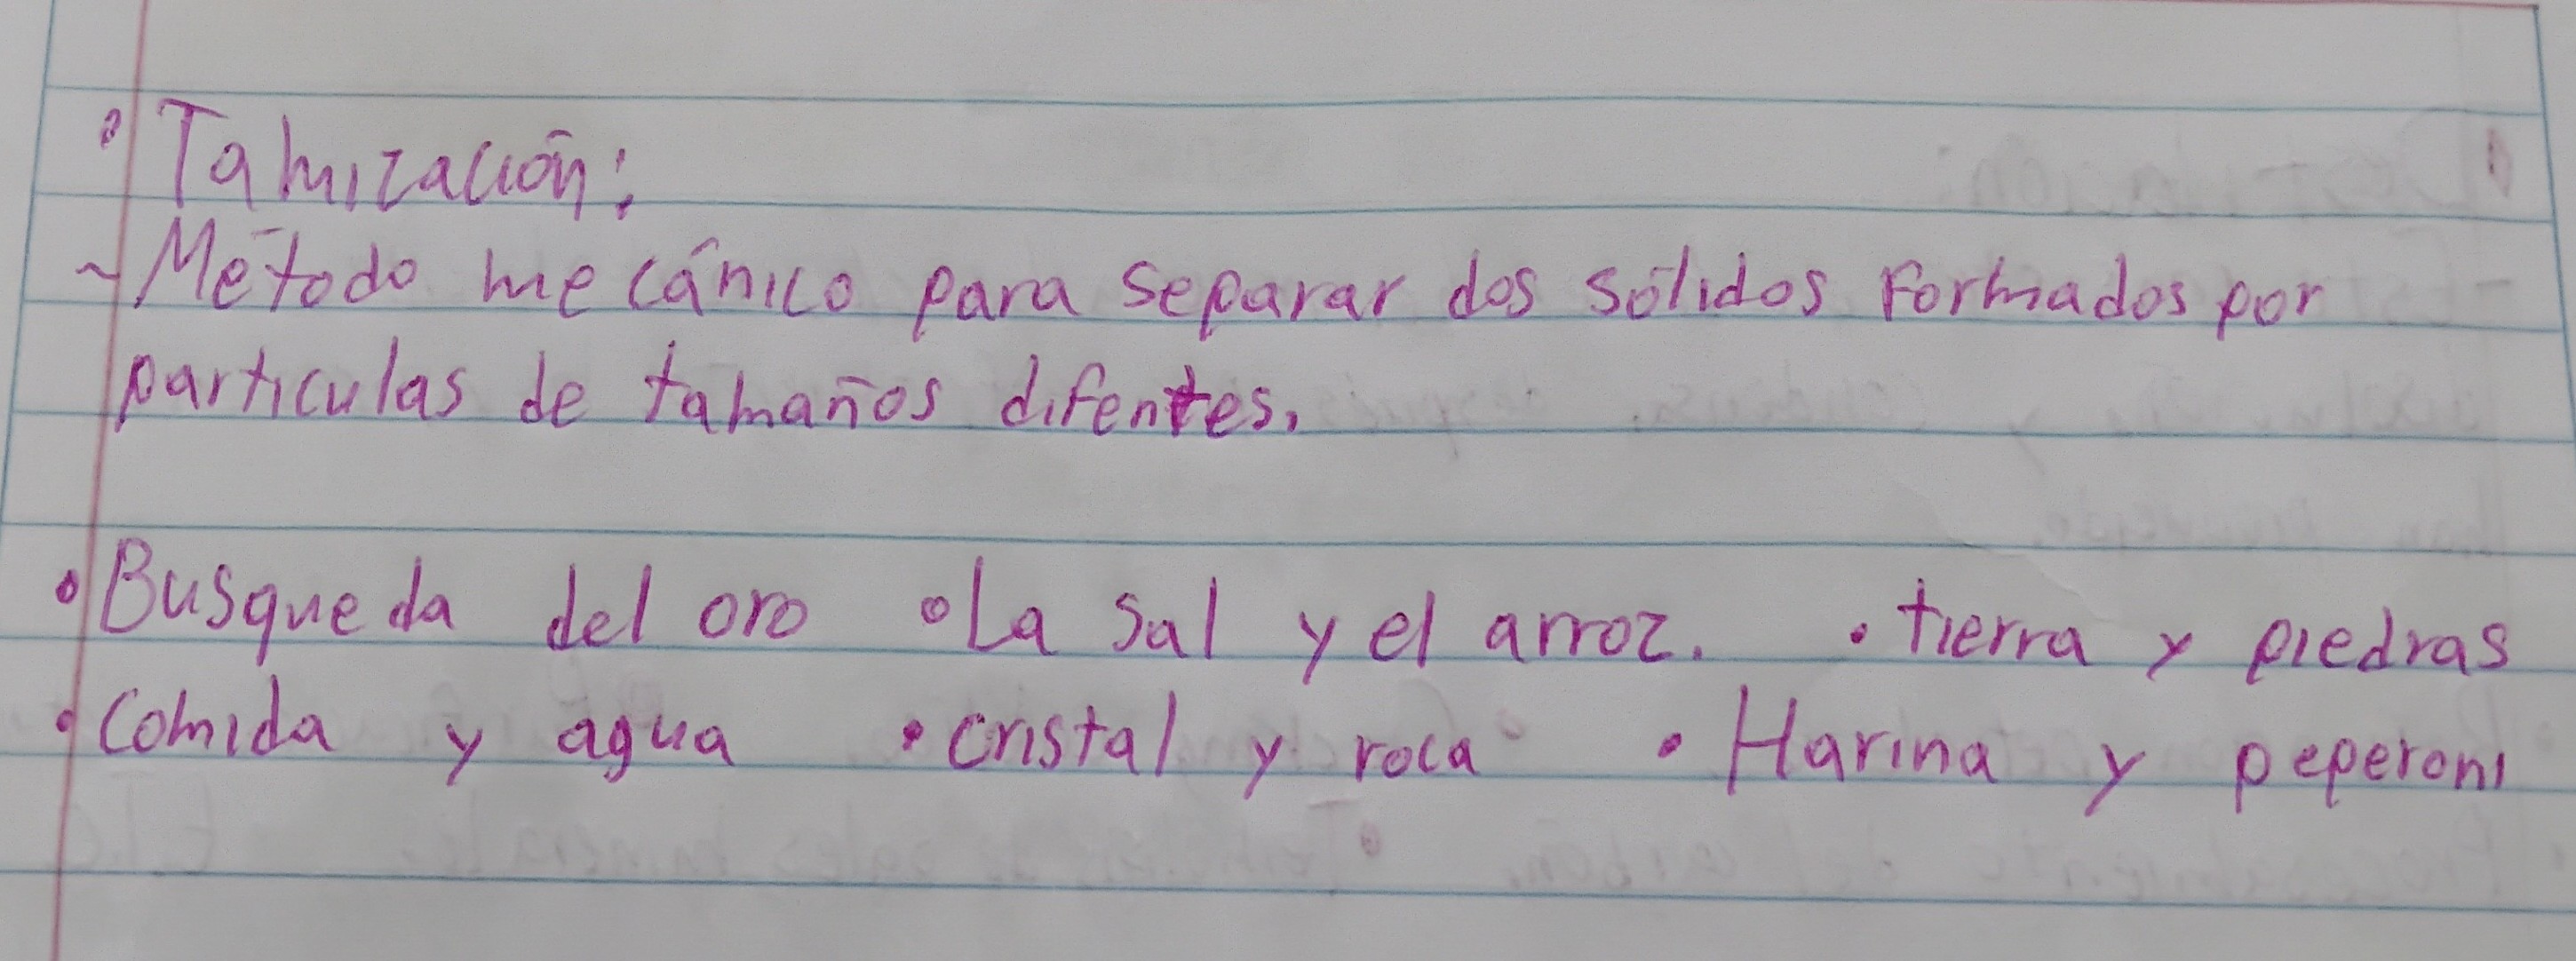 • Tamización:
- Método mecánico para separar dos sólidos formados por
particulas de tamaños difentes.
• Busqueda del oro • La sal y el arroz. • tierra y piedras
• Comida y agua • cristal y roca • Harina y peperoni